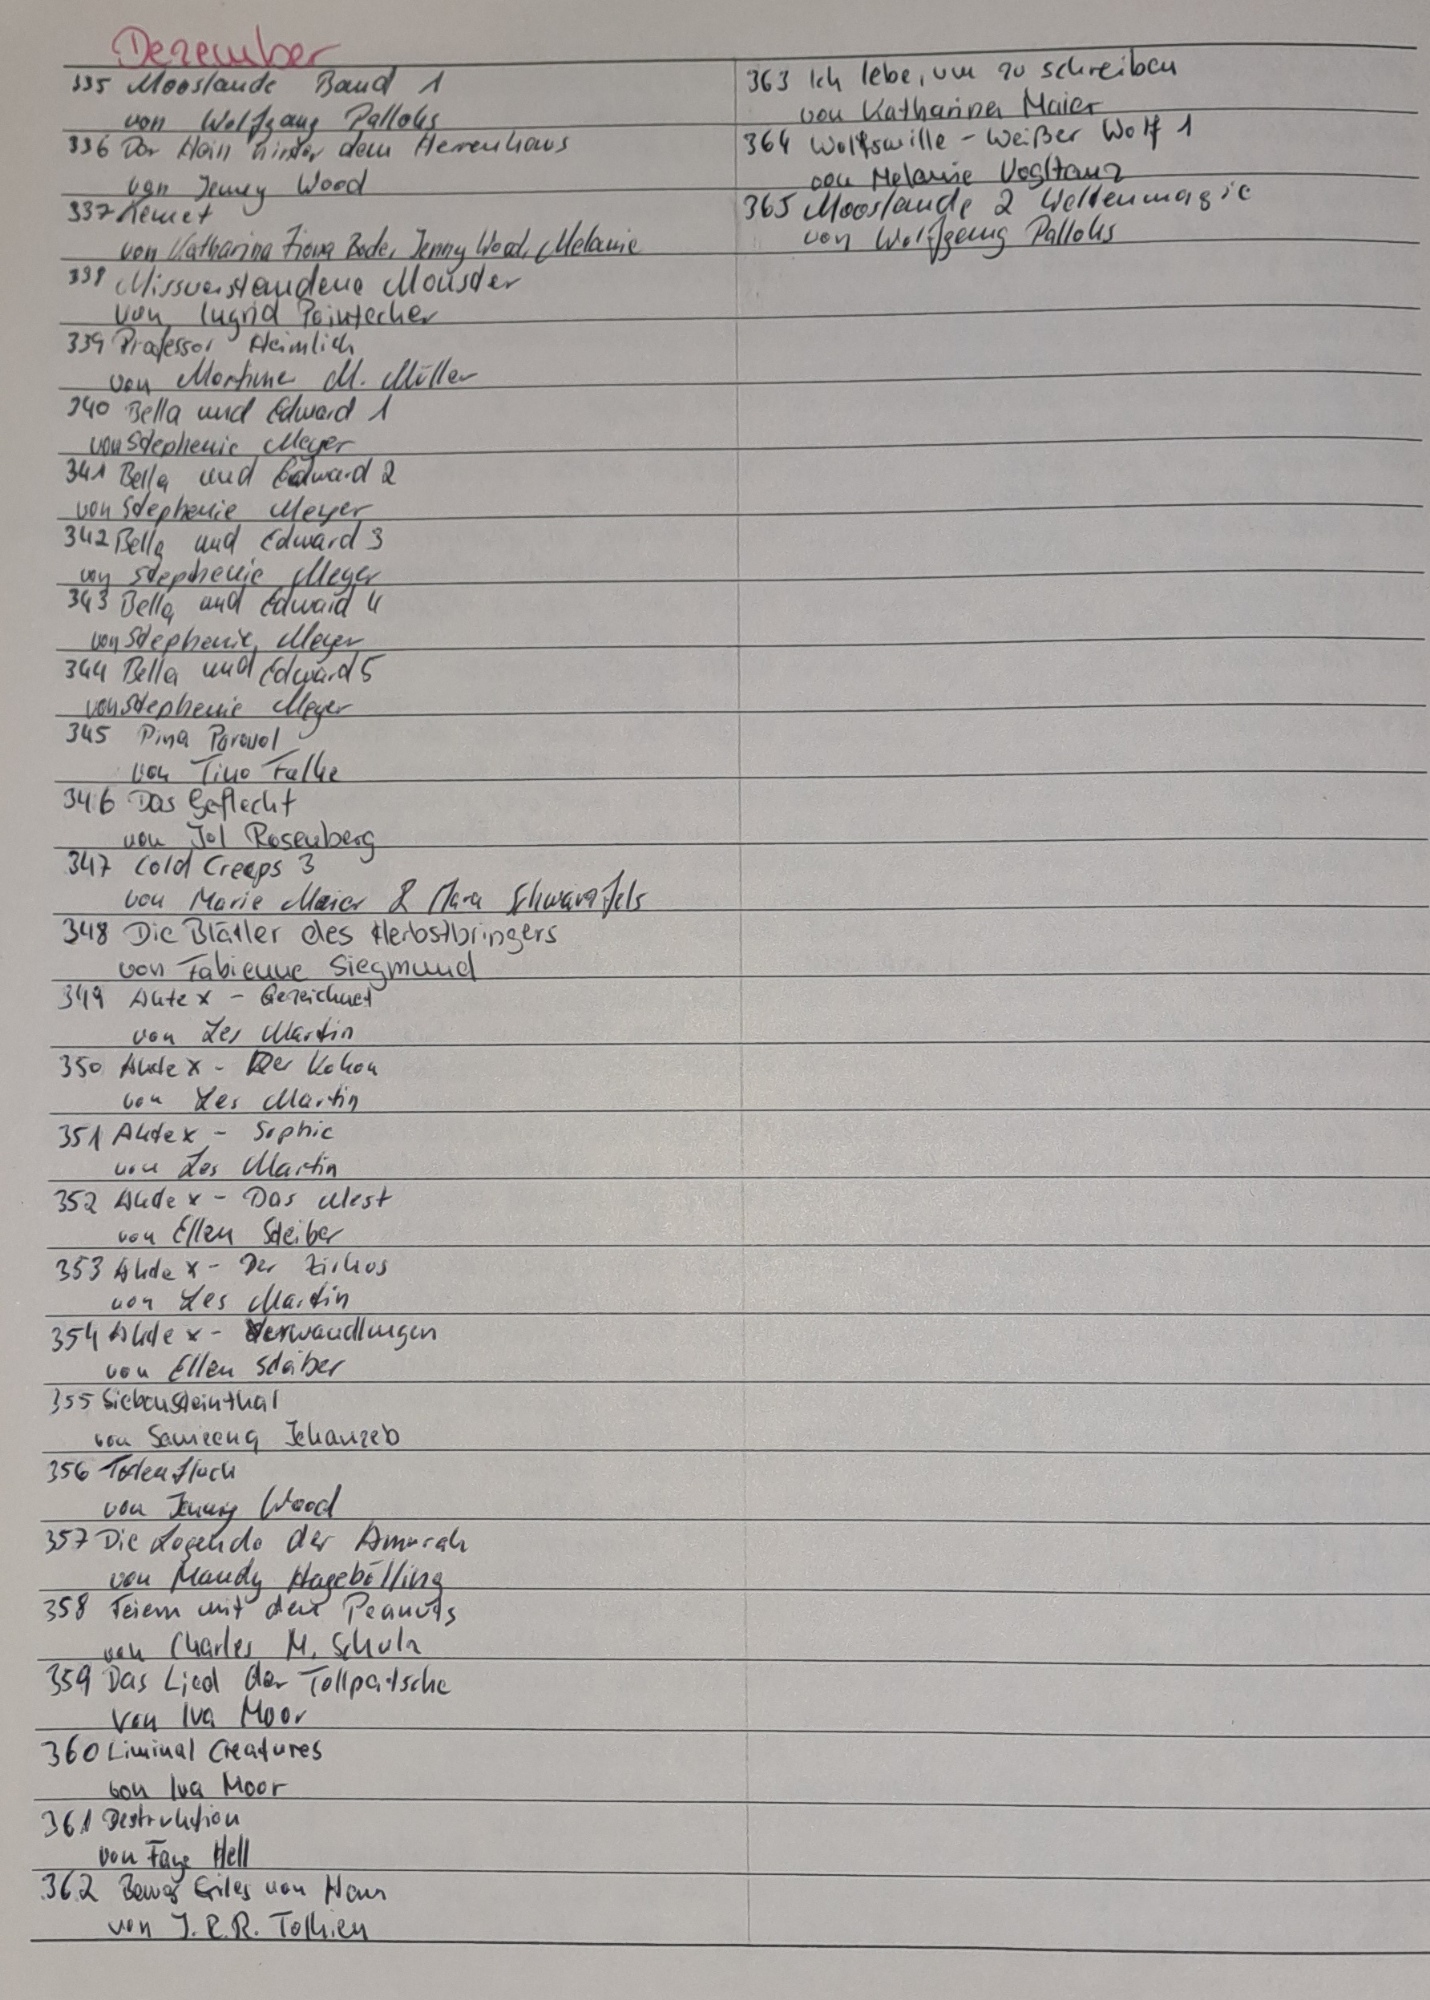 Dezember
335 Mooslande Band 1
von Wolfgang Palloks
336 Der Hain hinter dem Herrenhaus
von Jenny Wood
337 Kemet
von Katharina Fiona Bode, Jenny Wood, Melanie
338 Missverstandene Monster
von Ingrid Pointecker
339 Professor Heimlich
von Mortimer M. Müller
340 Bella und Edward 1
von Stephenie Meyer
341 Bella und Edward 2
von Stephenie Meyer
342 Bella und Edward 3
von Stephenie Meyer
343 Bella und Edward 4
von Stephenie Meyer
344 Bella und Edward 5
von Stephenie Meyer
345 Pina Parasol
von Tino Falke
346 Das Geflecht
von Jol Rosenberg
347 Cold Creeps 3
von Marie Meier & Mara Schwarzfels
348 Die Blätter des Herbstbringers
von Fabienne Siegmund
349 Akte X - Gezeichnet
von Les Martin
350 Akte X - Der Kokon
von Les Martin
351 Akte X - Sophie
von Les Martin
352 Akte X - Das Nest
von Ellen Steiber
353 Akte X - Der Zirkus
von Les Martin
354 Akte X - Verwandlungen
von Ellen Steiber
355 Siebensteinthal
von Sameena Jehanzeb
356 Totenfluch
von Jenny Wood
357 Die Legende der Amurah
von Mandy Hagebölling
358 Feiern mit den Peanuts
von Charles M. Schulz
359 Das Lied der Tollpatsche
von Iva Moor
360 Liminal Creatures
von Iva Moor
361 Destruktion
von Faye Hell
362 Bauer Giles von Ham
von J.R.R. Tolkien
363 Ich lebe, um zu schreiben
von Katharina Maier
364 Wolfswille - Weißer Wolf 1
von Melanie Vogltanz
365 Mooslande 2 Weltenmagie
von Wolfgang Palloks